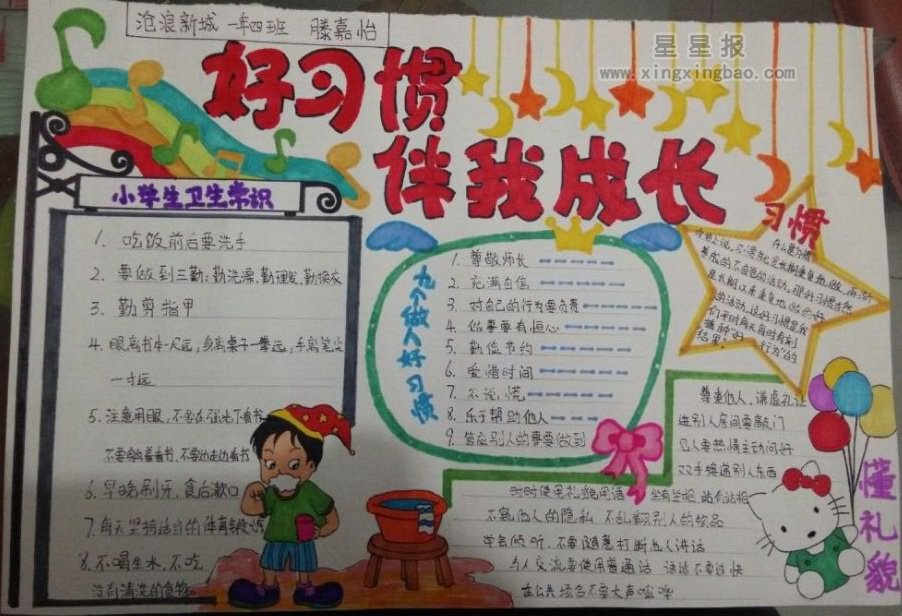 沧浪新城 一年四班 滕嘉怡
星星报
www.xingxingbao.com
好习惯
伴我成长
小学生卫生常识
1. 吃饭前后要洗手
2. 要做到三勤:勤洗澡,勤理发,勤换衣
3. 勤剪指甲
4. 眼离书本一尺远,身离桌子一拳远,手离笔尖
一寸远
5. 注意用眼,不要在强光下看书
不要躺着看书,不要边走边看书
6. 早晚刷牙,食后漱口
7. 每天坚持适当的体育锻炼
8. 不喝生水,不吃
没有清洗的食物
九个做人好习惯
1. 尊敬师长
2. 充满自信
3. 对自己的行为要负责
4. 做事要有恒心
5. 勤俭节约
6. 爱惜时间
7. 不说谎
8. 乐于帮助他人
9. 答应别人的事要做到
习惯
什么是习惯
结果。
懂礼貌
尊重他人,谦虚礼让
进别人房间要敲门
见人要热情主动问好
双手接递别人东西
时时使用礼貌用语 坐有坐相,站有站相
不窥他人的隐私 不乱翻别人的物品
学会倾听,不要随意打断他人讲话
与人交流要使用普通话 语速不要过快
在公共场合不要大声喧哗